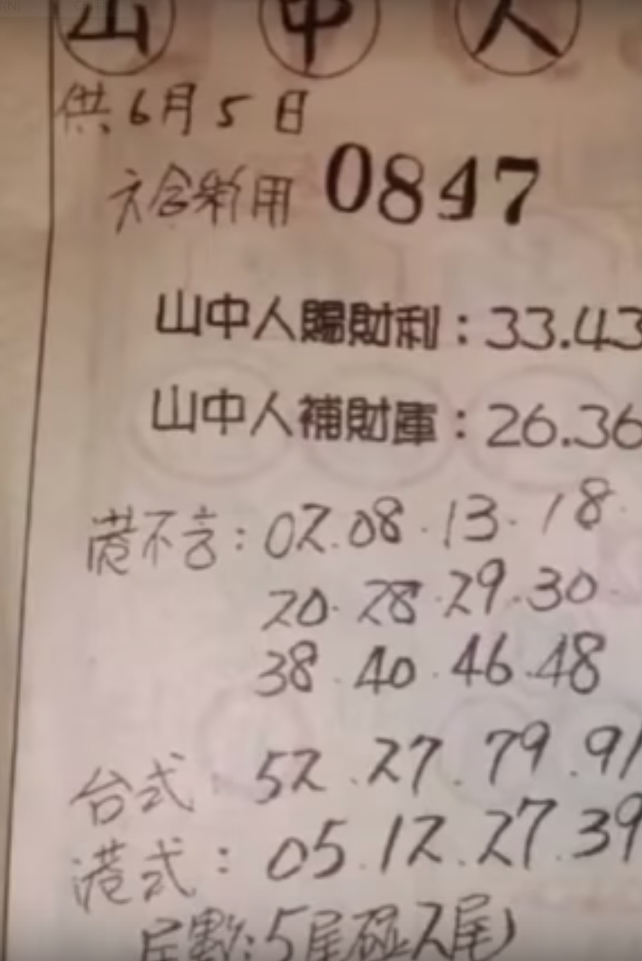 山 中 人
供6月5日
六合彩用 0847
山中人賜財利：33.43
山中人補財庫：26.36
港不言：02.08.13.18
20.28.29.30
38.40.46.48
台式 52.27.79.91
港式：05.12.27.39
尾數：5尾碰2尾